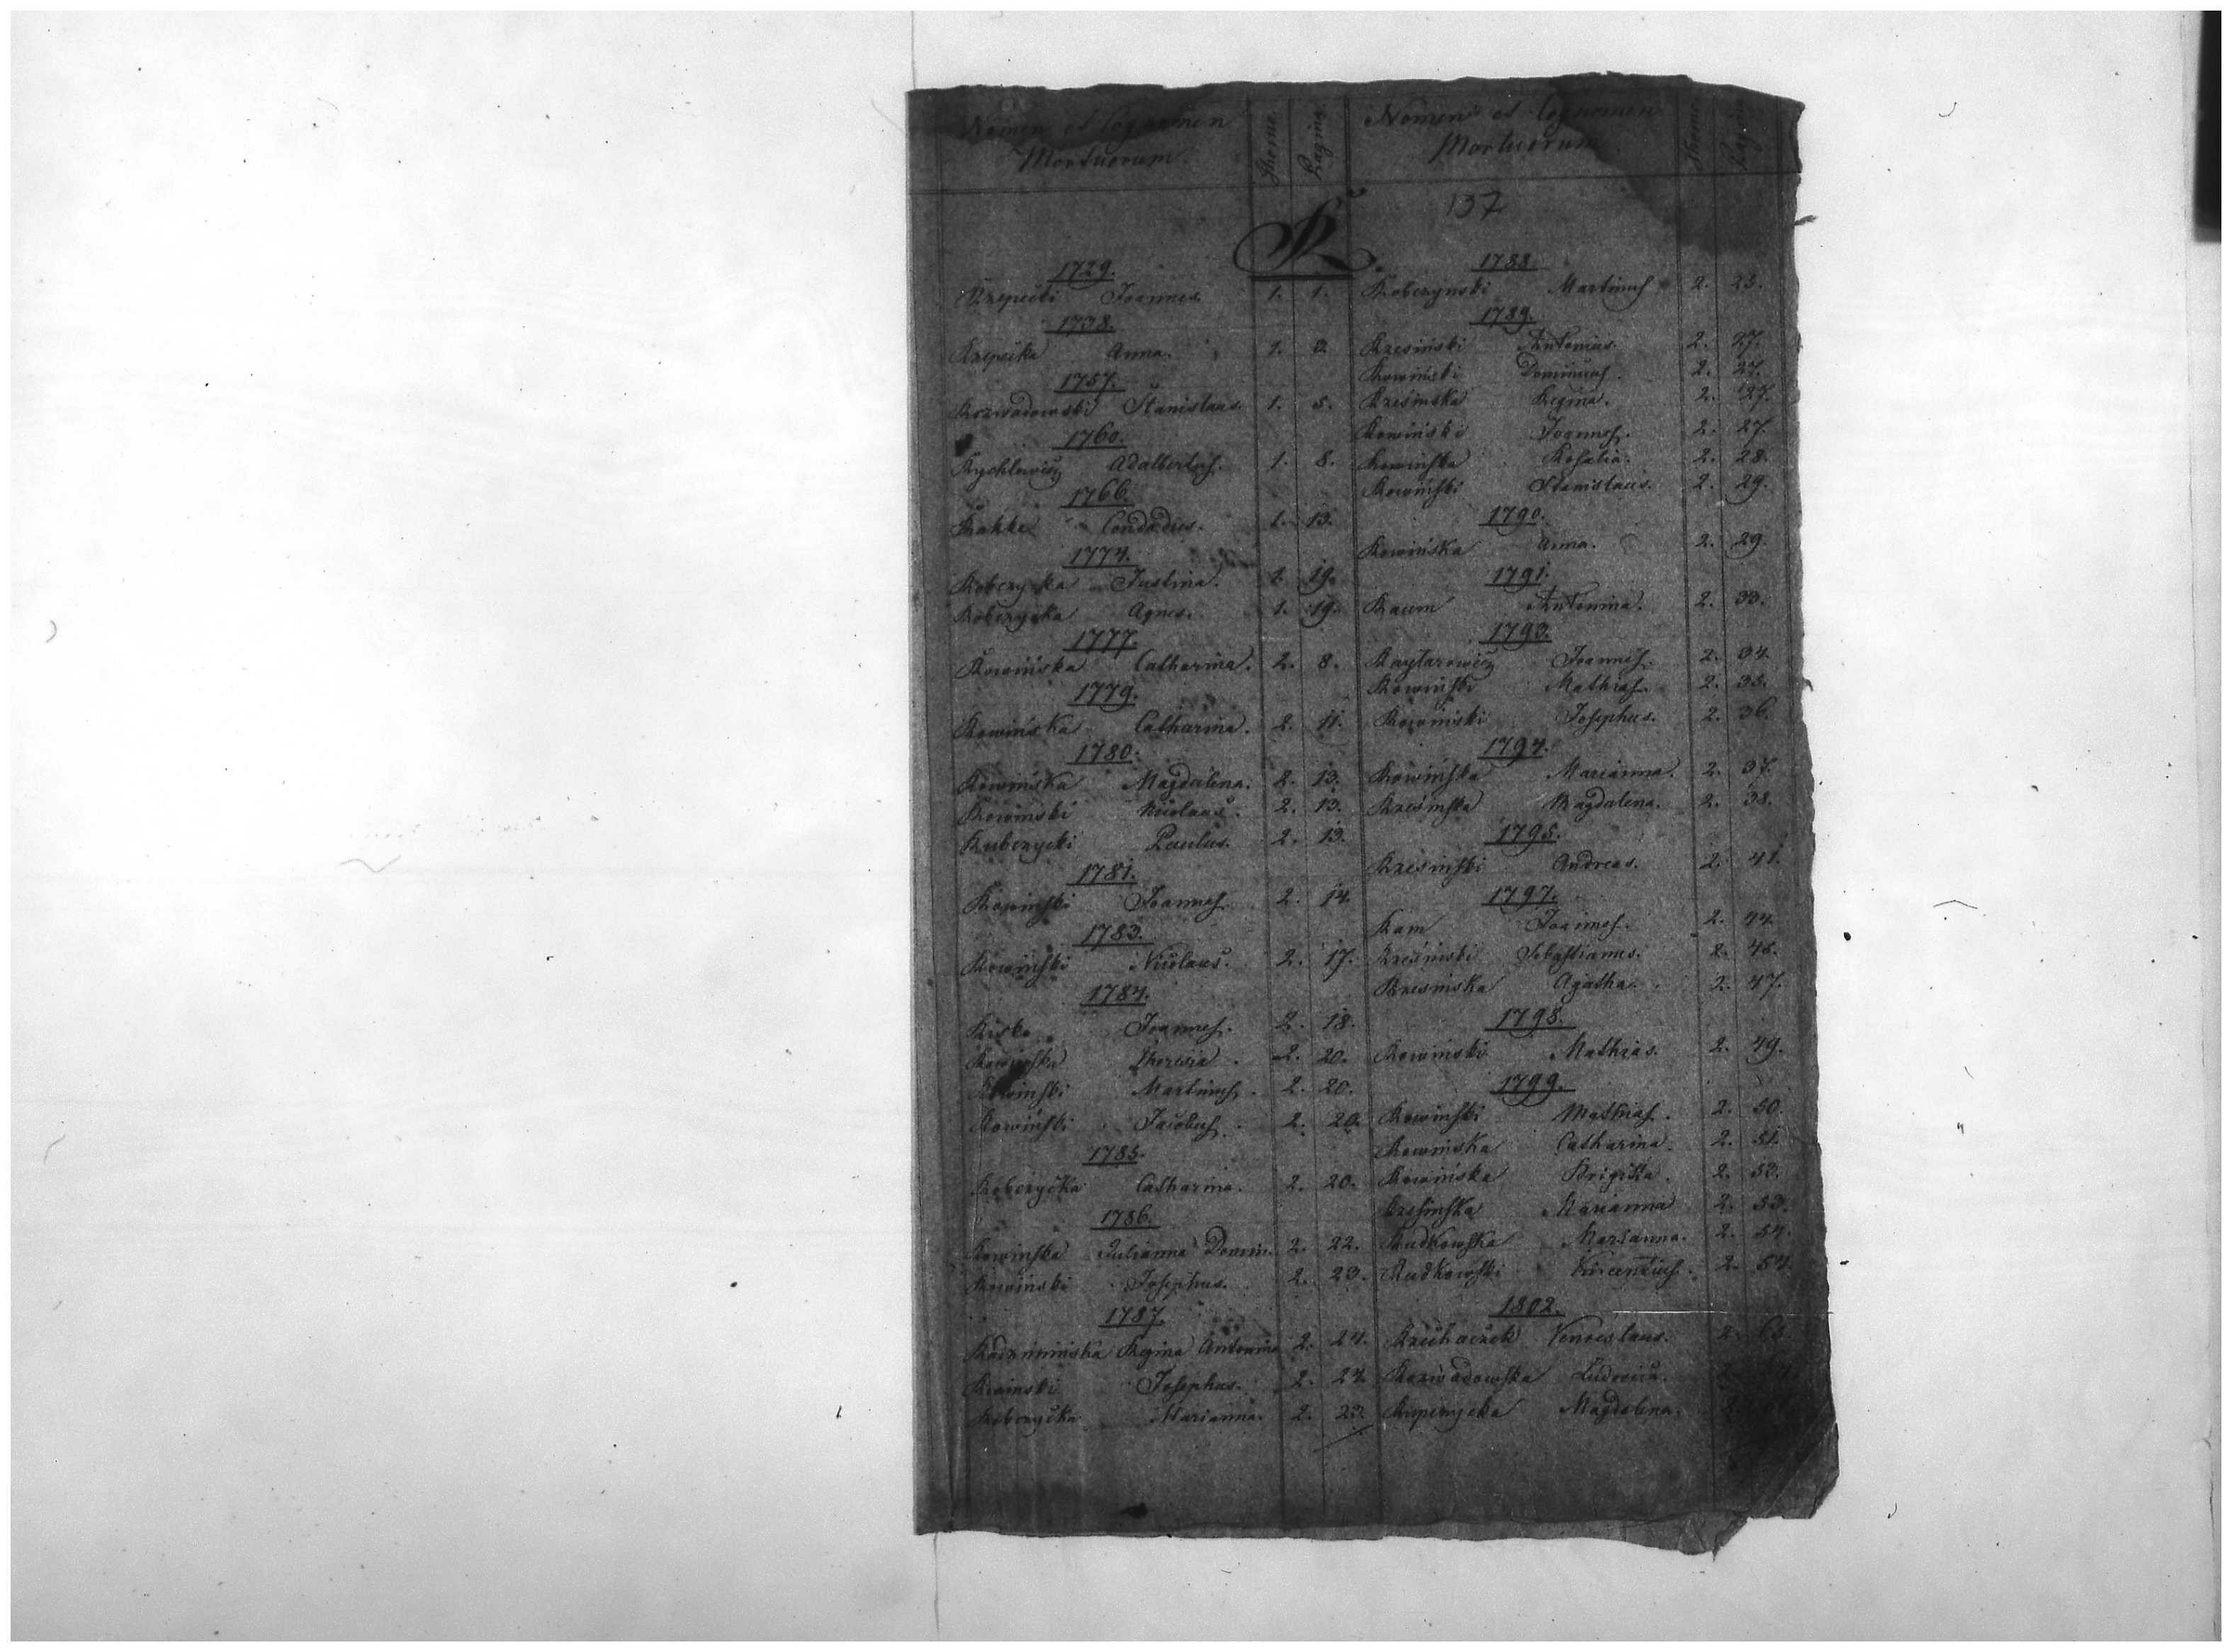 Nomen et Cognomen
Mortuorum
Thoma
Pagina
Nomen et Cognomen
Mortuorum
Thoma
Pagina
137
R.
1729.
Rzepecki Joannes 1. 1.
1738.
Rzepecka Anna. 1. 2.
1757.
Rozwadowski Stanislaus. 1. 5.
1760.
Rychlewicz Adalbertus. 1. 8.
1766.
1. 13.
1774.
Robczycka Justina. 1. 19.
Robczycka Agnes. 1. 19.
1777.
Rowińska Catharina. 2. 8.
1779.
Rowińska Catharina. 2. 11.
1780.
Rowińska Magdalena. 2. 13.
Rowinski Nicolaus. 2. 13.
Rubczycki Paulus. 2. 13.
1781.
Rowinski Joannes. 2. 14.
1783.
Rowinski Nicolaus. 2. 17.
1784.
Joannes. 2. 18.
Rowinska Theresia. 2. 20.
Rowinski Martinus. 2. 20.
Rowinski Jacobus. 2. 20.
1785.
Robczycka Catharina. 2. 20.
1786.
Rowinska Julianna Domin. 2. 22.
Rowinski Josephus. 2. 23.
1787.
Regina Antonina 2. 24.
Josephus. 2. 24.
Robczycka Marianna. 2. 23.
1788.
Robczynski Martinus 2. 25.
1789.
Rzesiński Antonius. 2. 27.
Rowiński Dominicus. 2. 27.
Rzesinska Regina. 2. 27.
Rowiński Joannes. 2. 27.
Rowinska Rosalia. 2. 28.
Rowiński Stanislaus. 2. 29.
1790.
Rowińska Anna. 2. 29.
1791.
Raum Antonina. 2. 33.
1793.
Raytarowicz Joannes. 2. 34.
Rowiński Mathias. 2. 35.
Rowiński Josephus. 2. 36.
1794.
Rowińska Marianna. 2. 37.
Rzesińska Magdalena. 2. 38.
1795.
Rzesinski Andreas. 2. 41.
1797.
Ram Joannes. 2. 44.
Rzesinski Sebastianus. 2. 46.
Rzesinska Agatha. 2. 47.
1798.
Rowiński Mathias. 2. 49.
1799.
Rowinski Mathias. 2. 50.
Rowinska Catharina. 2. 51.
Rowińska Brigitta. 2. 53.
Rzesinska Marianna 2. 53.
Rudkowska Marianna. 2. 54.
Rudkowski Vincentius. 2. 54.
1802.
Venceslaus. 2.
Rozwadowska Ludovica.
Magdalena.